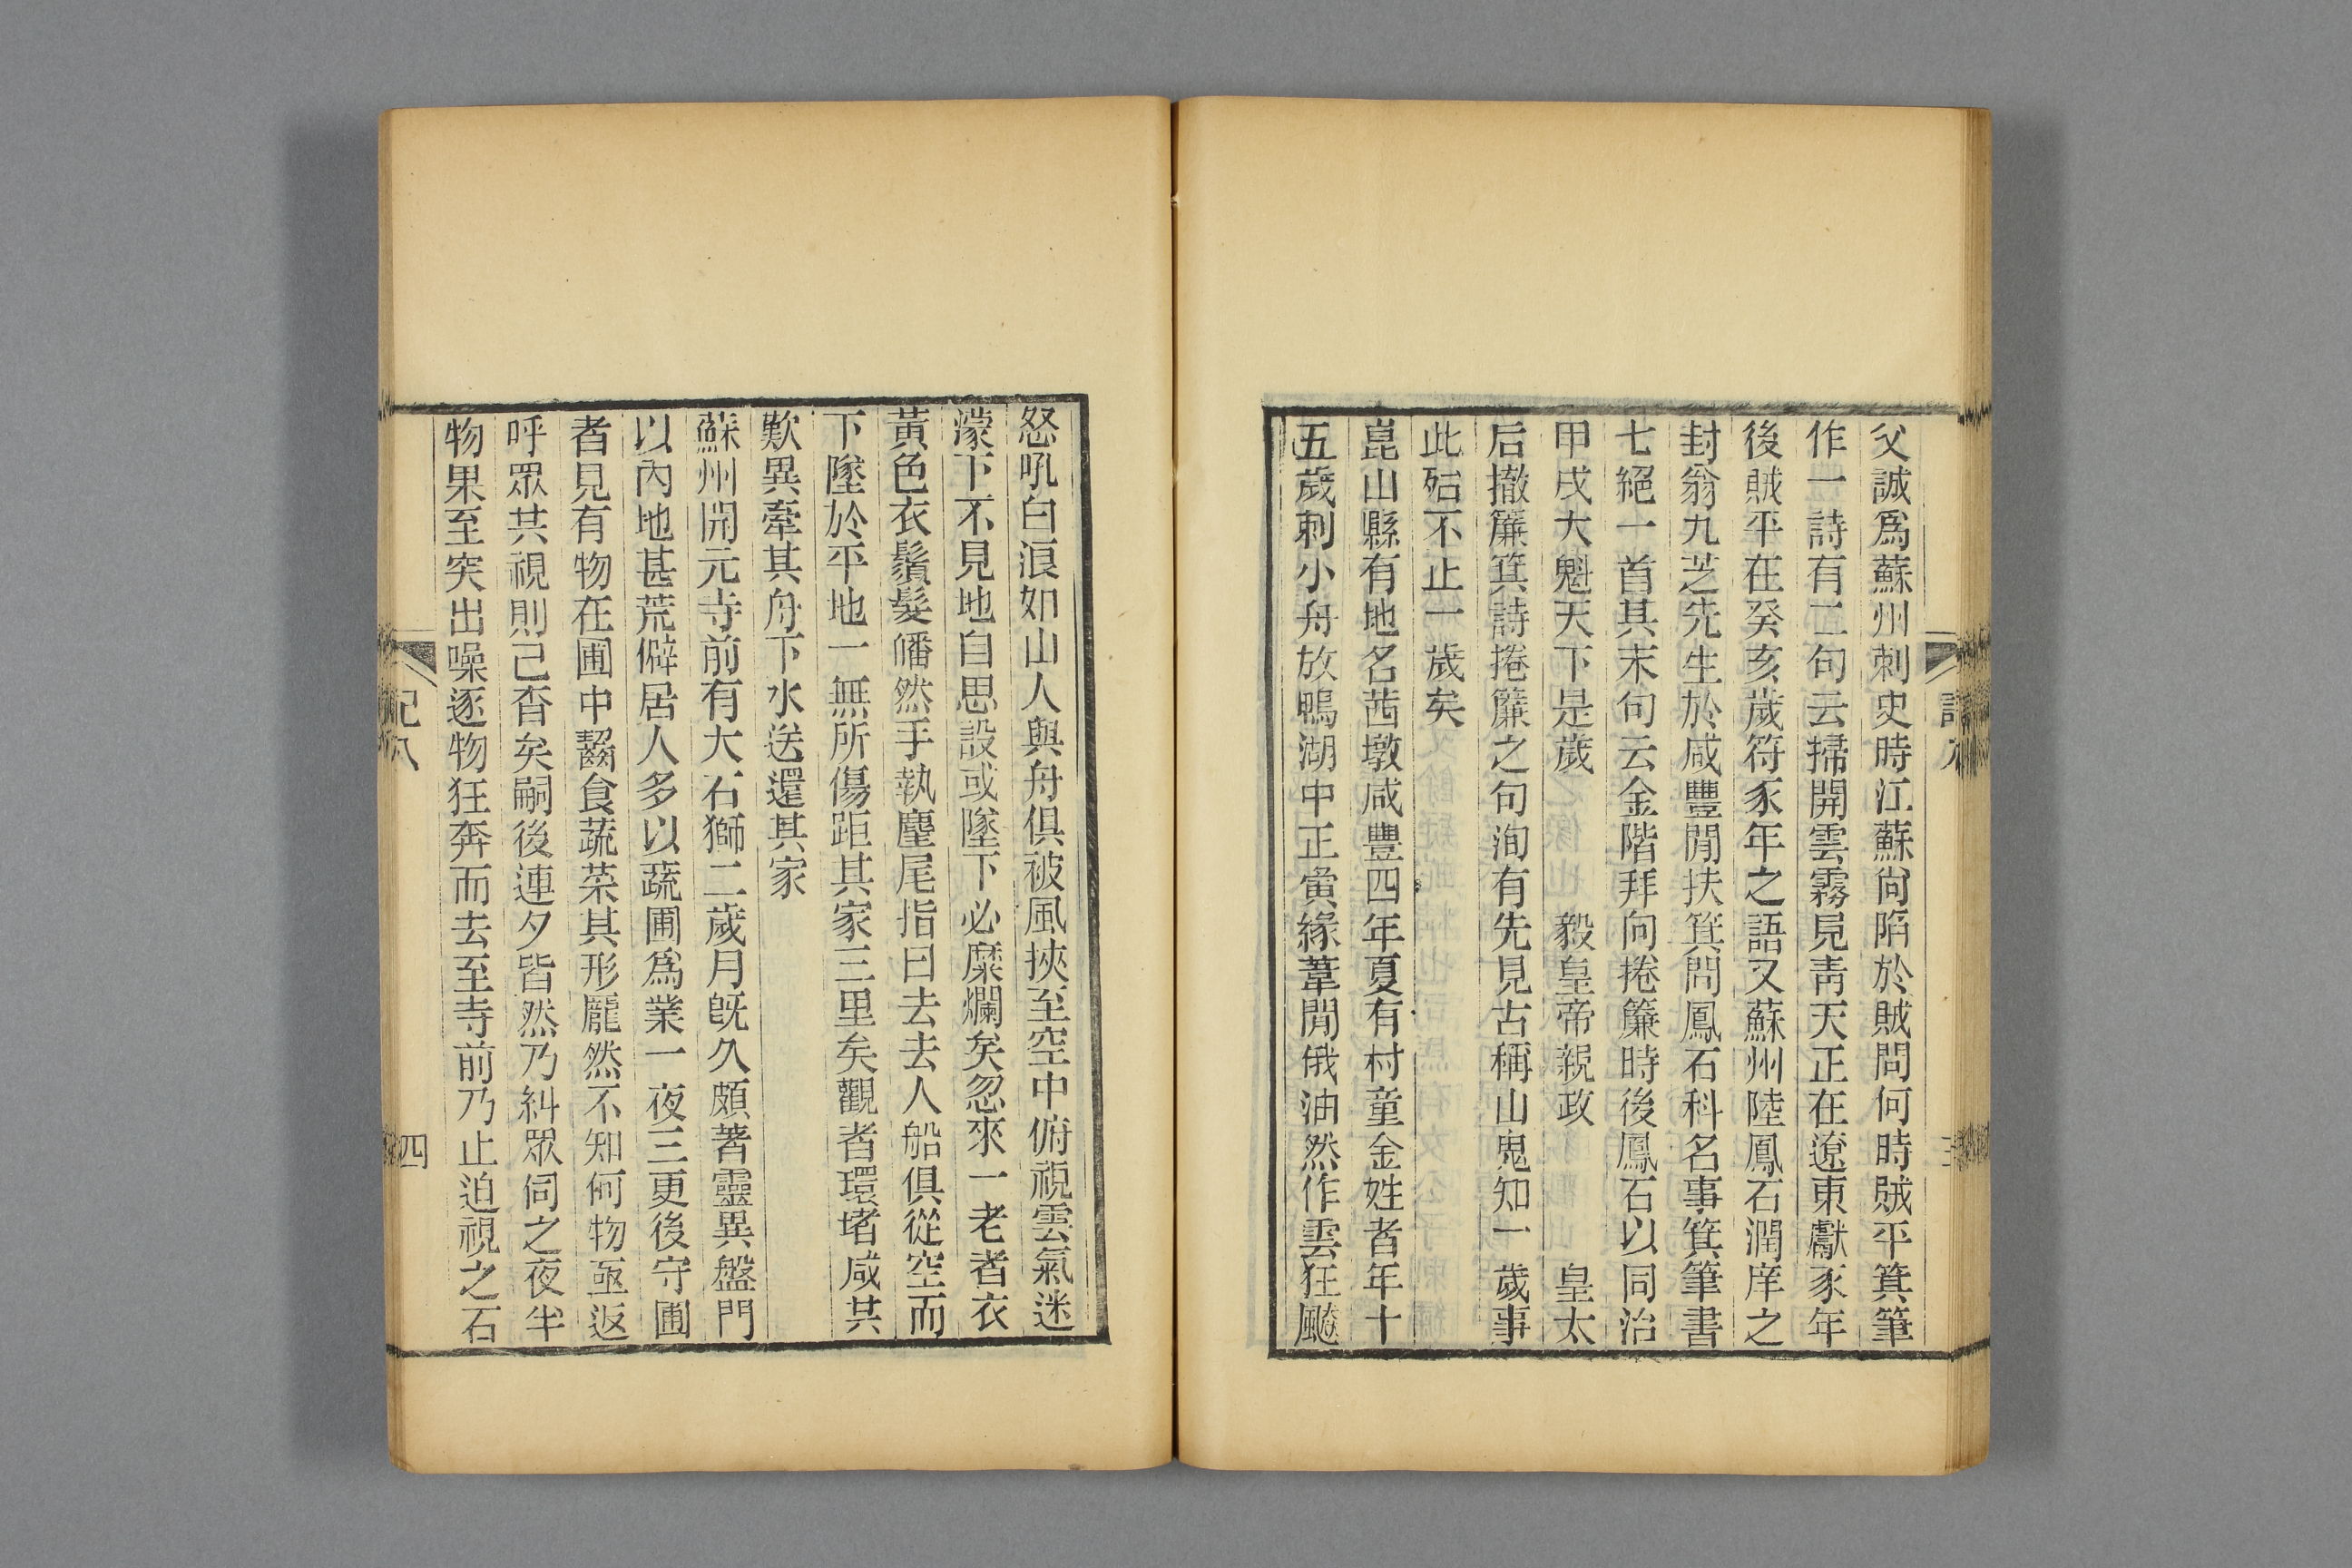 父誠爲蘇州刺史時江蘇尙陷於賊問何時賊平箕筆
作一詩有二句云掃開雲霧見靑天正在遼東獻豕年
後賊平在癸亥歲符豕年之語又蘇州陸鳳石潤庠之
封翁九芝先生於咸豐閒扶箕問鳳石科名事箕筆書
七絕一首其末句云金階拜向捲簾時後鳳石以同治
甲戌大魁天下是歲　　毅皇帝親政　　皇太
后撤簾箕詩捲簾之句洵有先見古稱山鬼知一歲事
此殆不止一歲矣
崑山縣有地名茜墩咸豐四年夏有村童金姓者年十
五歲刺小舟放鴨湖中正夤緣葦閒俄油然作雲狂飇
怒吼白浪如山人與舟俱被風挾至空中俯視雲氣迷
濛下不見地自思設或墜下必糜爛矣忽來一老者衣
黃色衣鬚髮皤然手執麈尾指曰去去人船俱從空而
下墜於平地一無所傷距其家三里矣觀者環堵咸共
歎異牽其舟下水送還其家
蘇州開元寺前有大石獅二歲月旣久頗著靈異盤門
以內地甚荒僻居人多以蔬圃爲業一夜三更後守圃
者見有物在圃中齧食蔬菜其形龐然不知何物亟返
呼眾共視則已杳矣嗣後連夕皆然乃糾眾伺之夜半
物果至突出噪逐物狂奔而去至寺前乃止迫視之石
記八
四